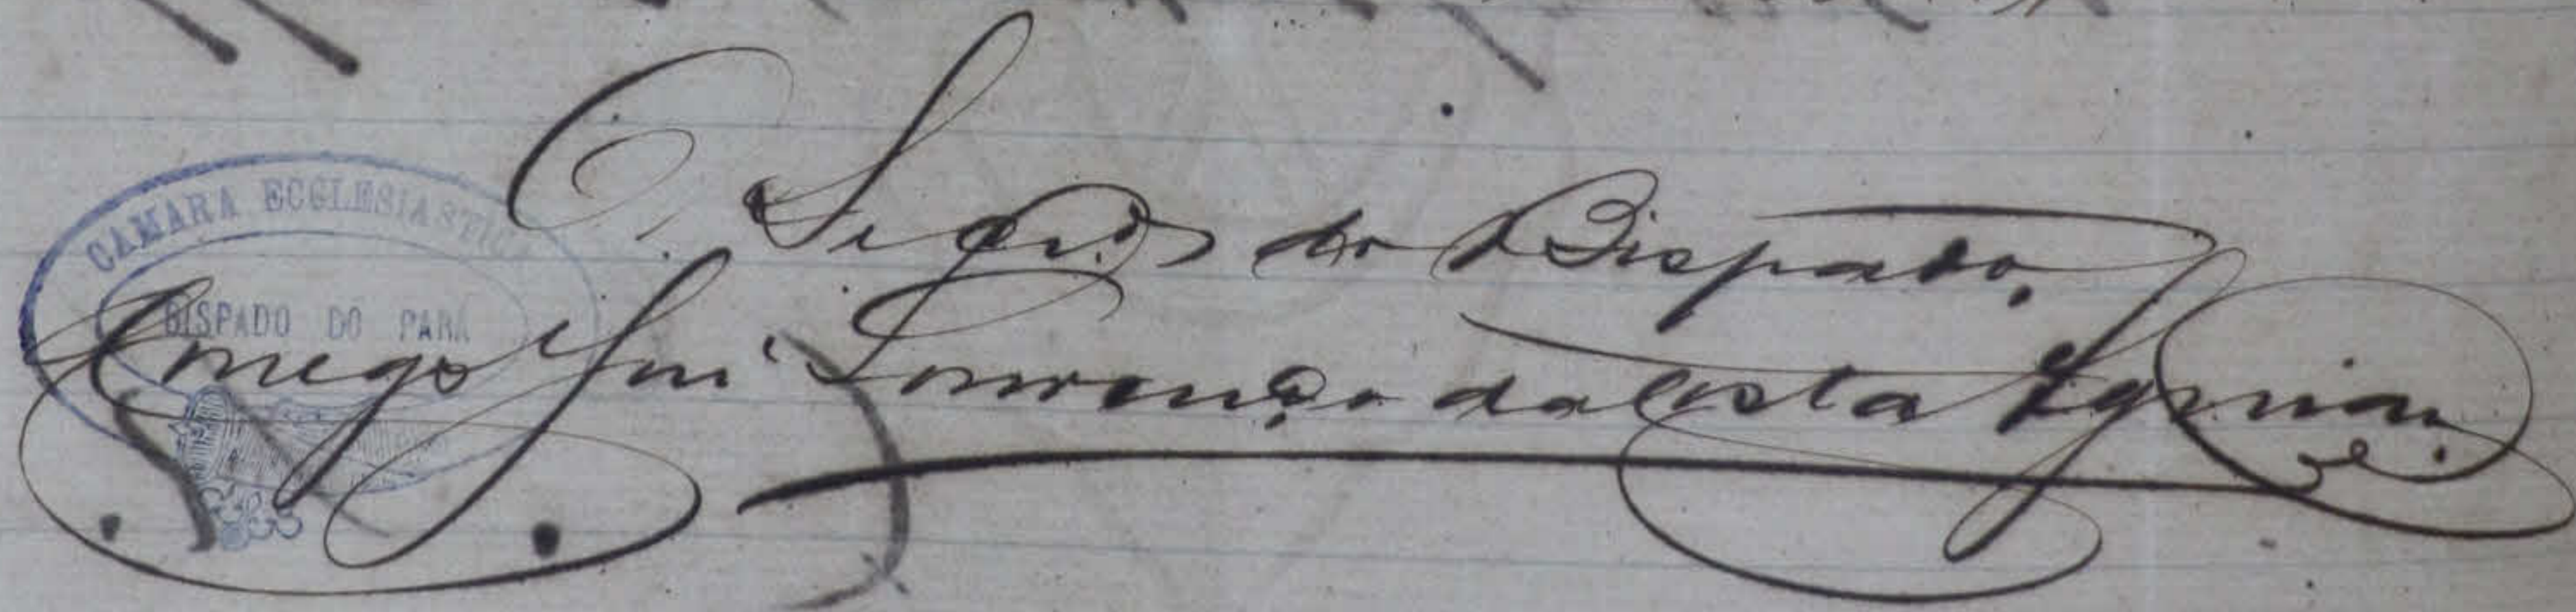 CAMARA ECCLESIASTICA
BISPADO DO PARÁ
O Secr.º do Bispado,
Conego José Lourenço da Costa Aguiar.